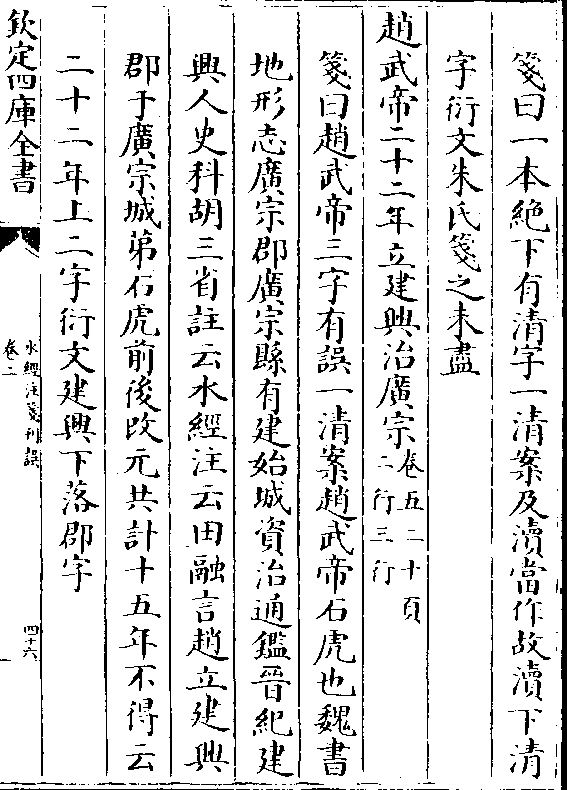 箋曰一本絶下有清字一清案及瀆當作故瀆下清
字衍文朱氏箋之未盡
趙武帝二十二年立建興治廣宗卷五二十頁二行三行
箋曰趙武帝三字有誤一清案趙武帝石虎也魏書
地形志廣宗郡廣宗縣有建始城資治通鑑晉紀建
興人史科胡三省註云水經注云田融言趙立建興
郡于廣宗城苐石虎前後改元共計十五年不得云
二十二年上二字衍文建興下落郡字
欽定四庫全書
水經注箋刋誤
卷二
四十六